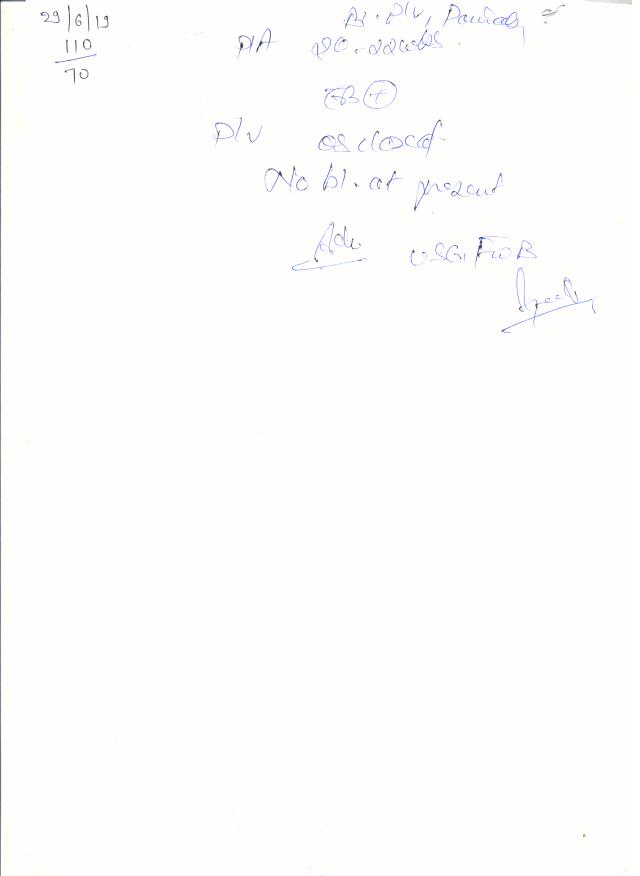 29/6/19
110
70
Bl. P/V, Pain
P/A 20-22 wks.
FB +
P/V os closed
No bl. at present
Adv USG, FWB